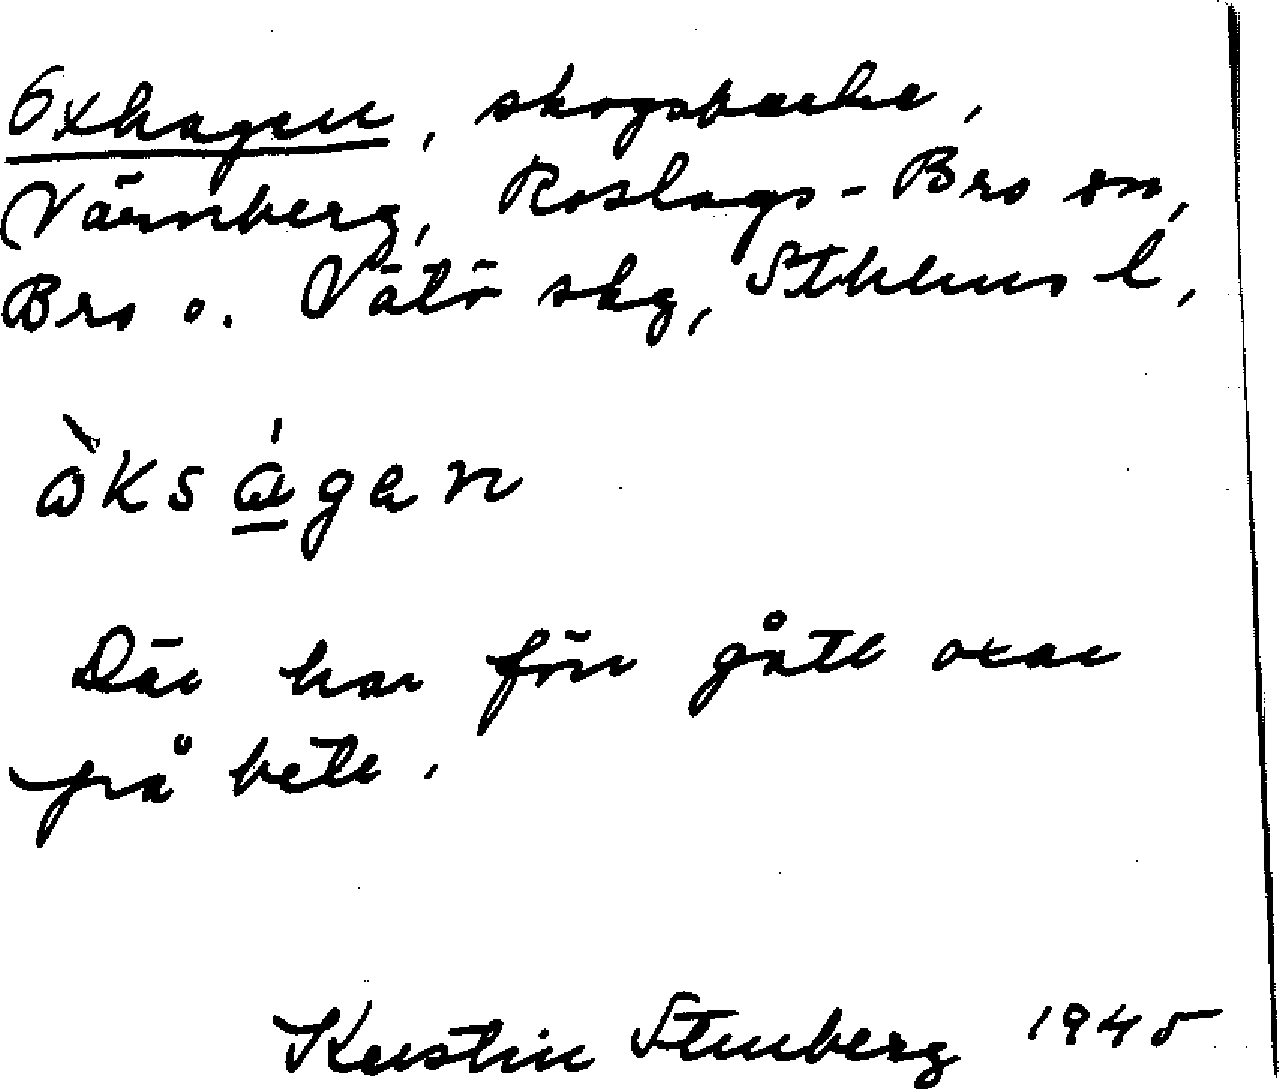 Oxhagen, skogsbacke,
Värnberg, Roslags-Bro sn,
Bro o. Vätö skg, Sthlms l,
ò̀kságen
Där har förr gått oxar
på bete.
Kerstin Stenberg 1945